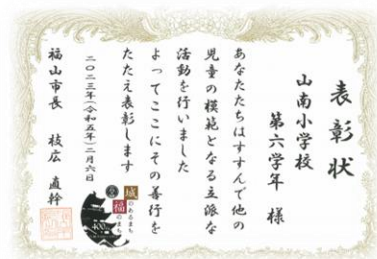 表彰状
山南小学校
第六学年 様
あなたたちはすすんで他の
児童の模範となる立派な
活動を行いました
よってここにその善行を
たたえ表彰します
二〇二三年(令和五年)二月六日
福山市長 枝広 直幹
城のあるまち
福のまち
400